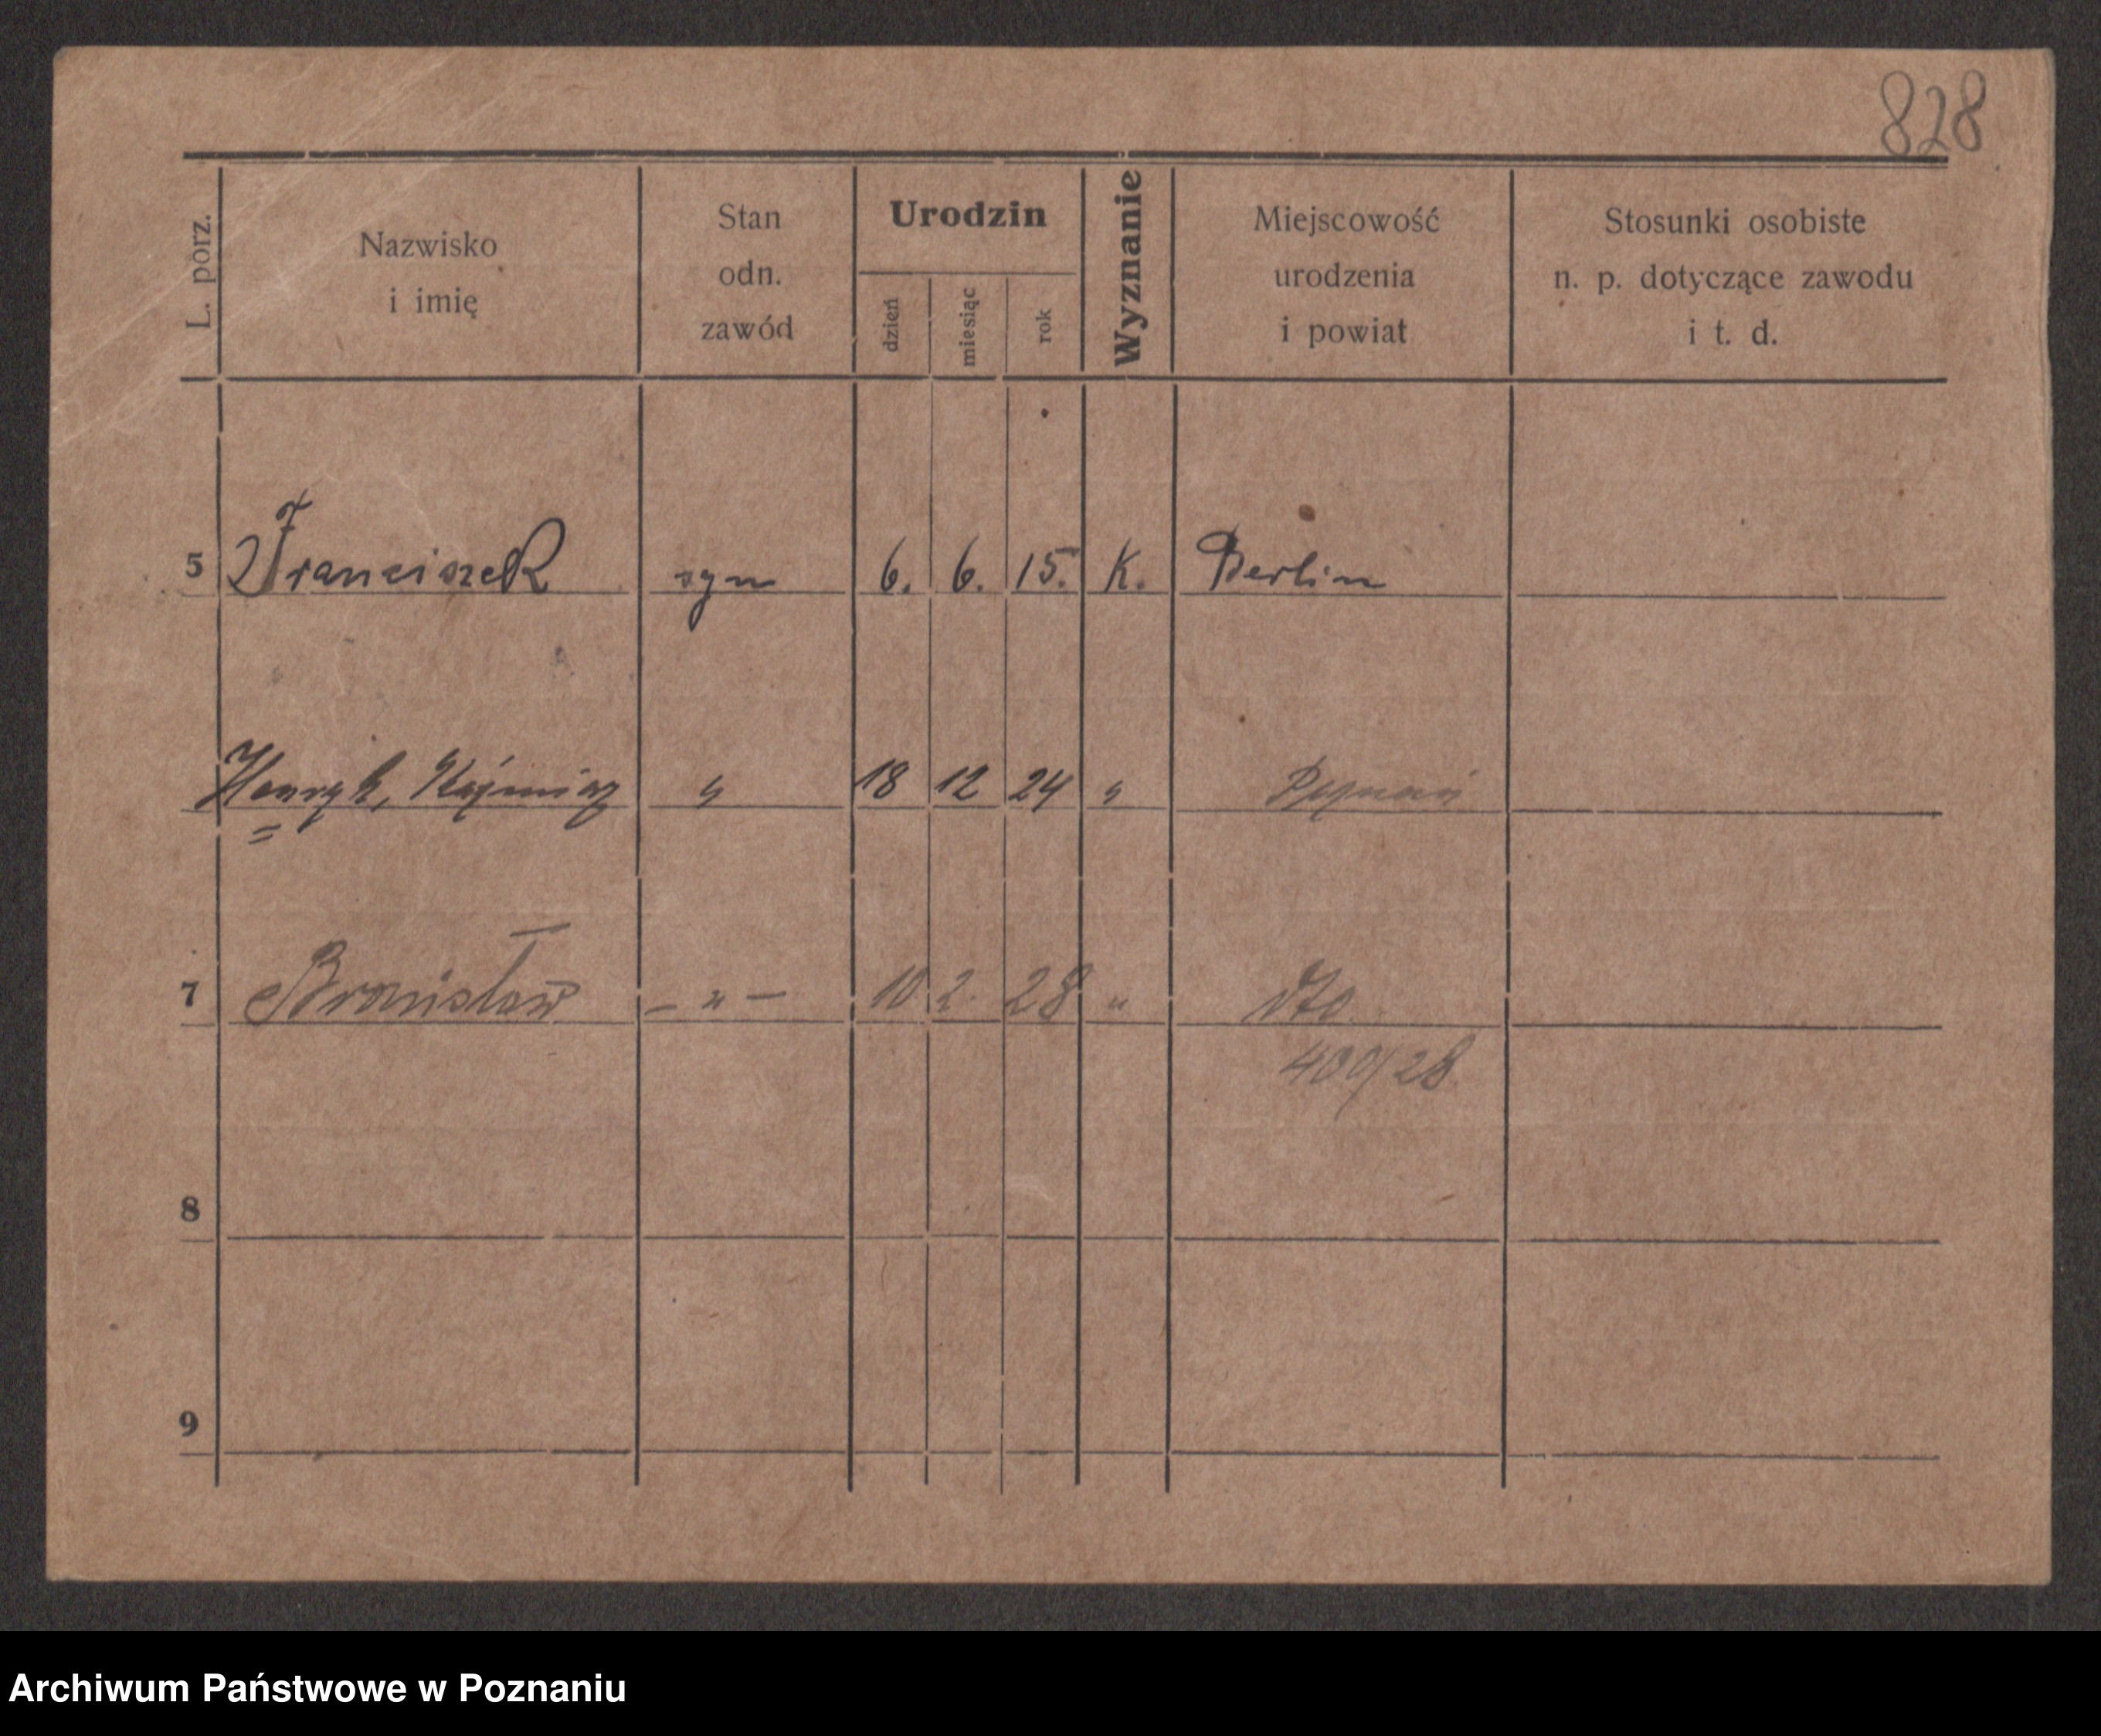 828
L. porz.
Nazwisko
i imię
Stan
odn.
zawód
Urodzin
dzień
miesiąc
rok
Wyznanie
Miejscowość
urodzenia
i powiat
Stosunki osobiste
n. p. dotyczące zawodu
i t. d.
5 Franciszek syn 6. 6. 15. K. Berlin
Henryk, Kaźmierz " 18 12 24 " Poznań
7 Bronisław – " – 10 2. 28 " dto
400/28
8
9
Archiwum Państwowe w Poznaniu